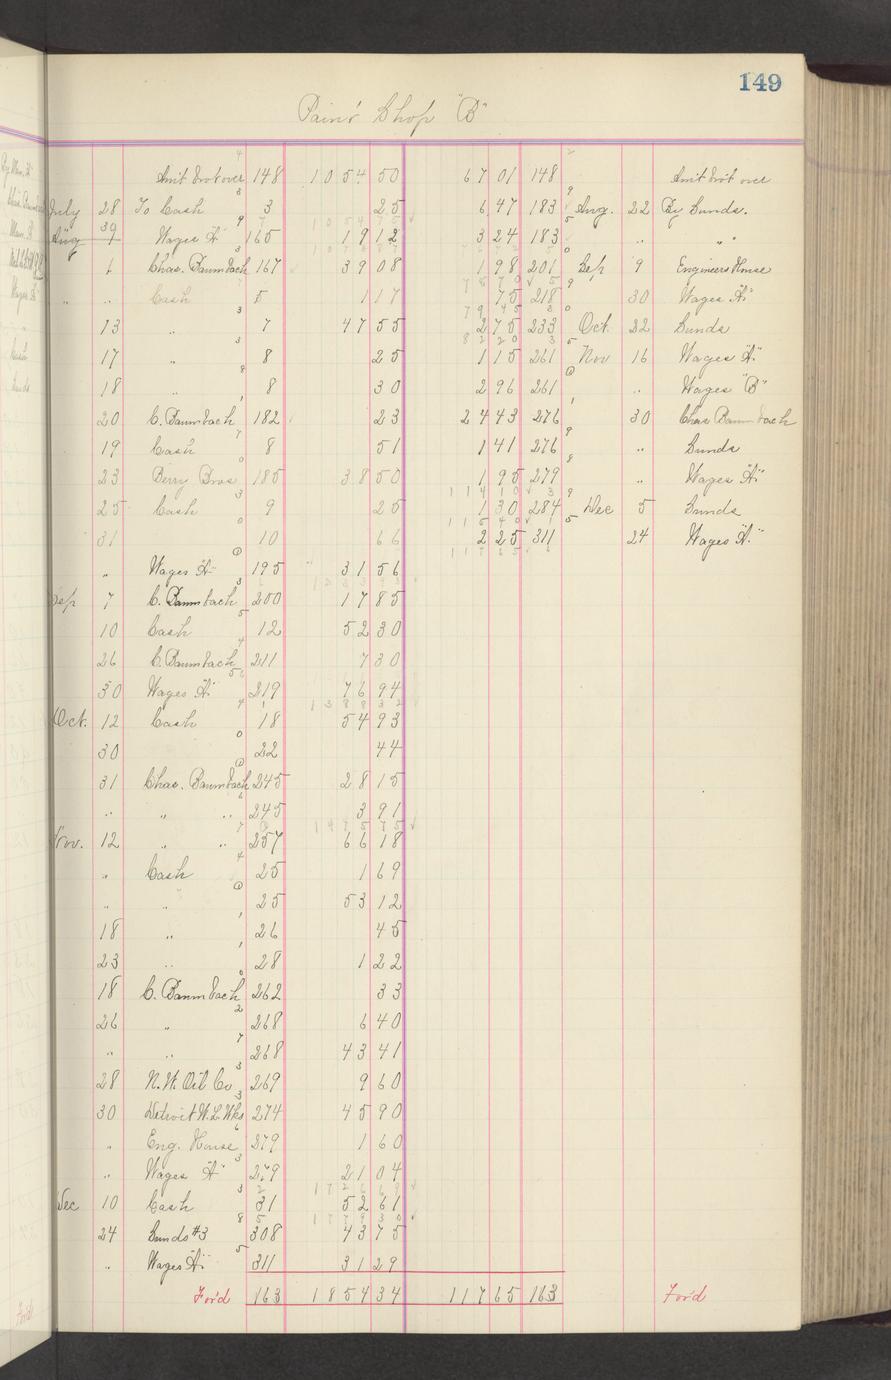 149
Paint Shop "B"
Amt brot over 148 1054 50 67 01 148 Amt brot over
July 28 To Cash 3 25 6 47 183 Aug. 22 By Sunds.
Aug 1 Wages "A" 165 19 12 3 24 183 " "
1 Chas. Baumbach 167 39 08 1 98 201 Sep 9 Engineers House
" " Cash 5 1 17 75 218 30 Wages "A"
13 " 7 47 55 2 75 233 Oct. 22 Sunds
17 " 8 25 1 15 261 Nov 16 Wages "A"
18 " 8 30 2 96 261 " Wages "B"
20 C. Baumbach 182 23 24 43 276 30 Chas Baumbach
19 Cash 8 51 1 41 276 " Sunds
23 Berry Bros 185 38 50 1 95 279 " Wages "A"
25 Cash 9 25 1 30 284 Dec 5 Sunds
31 10 66 2 25 311 24 Wages "A"
" Wages "A" 195 31 56
Sep 7 C. Baumbach 200 17 85
10 Cash 12 52 30
26 C. Baumbach 211 7 30
30 Wages "A" 219 76 94
Oct. 12 Cash 18 54 93
30 22 44
31 Chas. Baumbach 245 28 15
" " " 245 3 91
Nov. 12 " " 257 66 18
" Cash 25 1 69
" " 25 53 12
18 " 26 45
23 " 28 1 22
18 C. Baumbach 262 33
26 " 268 6 40
" " 268 43 41
28 N. W. Oil Co 269 9 60
30 Detroit W. L. Wks 274 45 90
" Eng. House 279 1 60
" Wages "A" 279 21 04
Dec 10 Cash 31 52 61
24 Sunds #3 308 43 75
" Wages "A" 311 31 29
For'd 163 1854 34 117 65 163 For'd